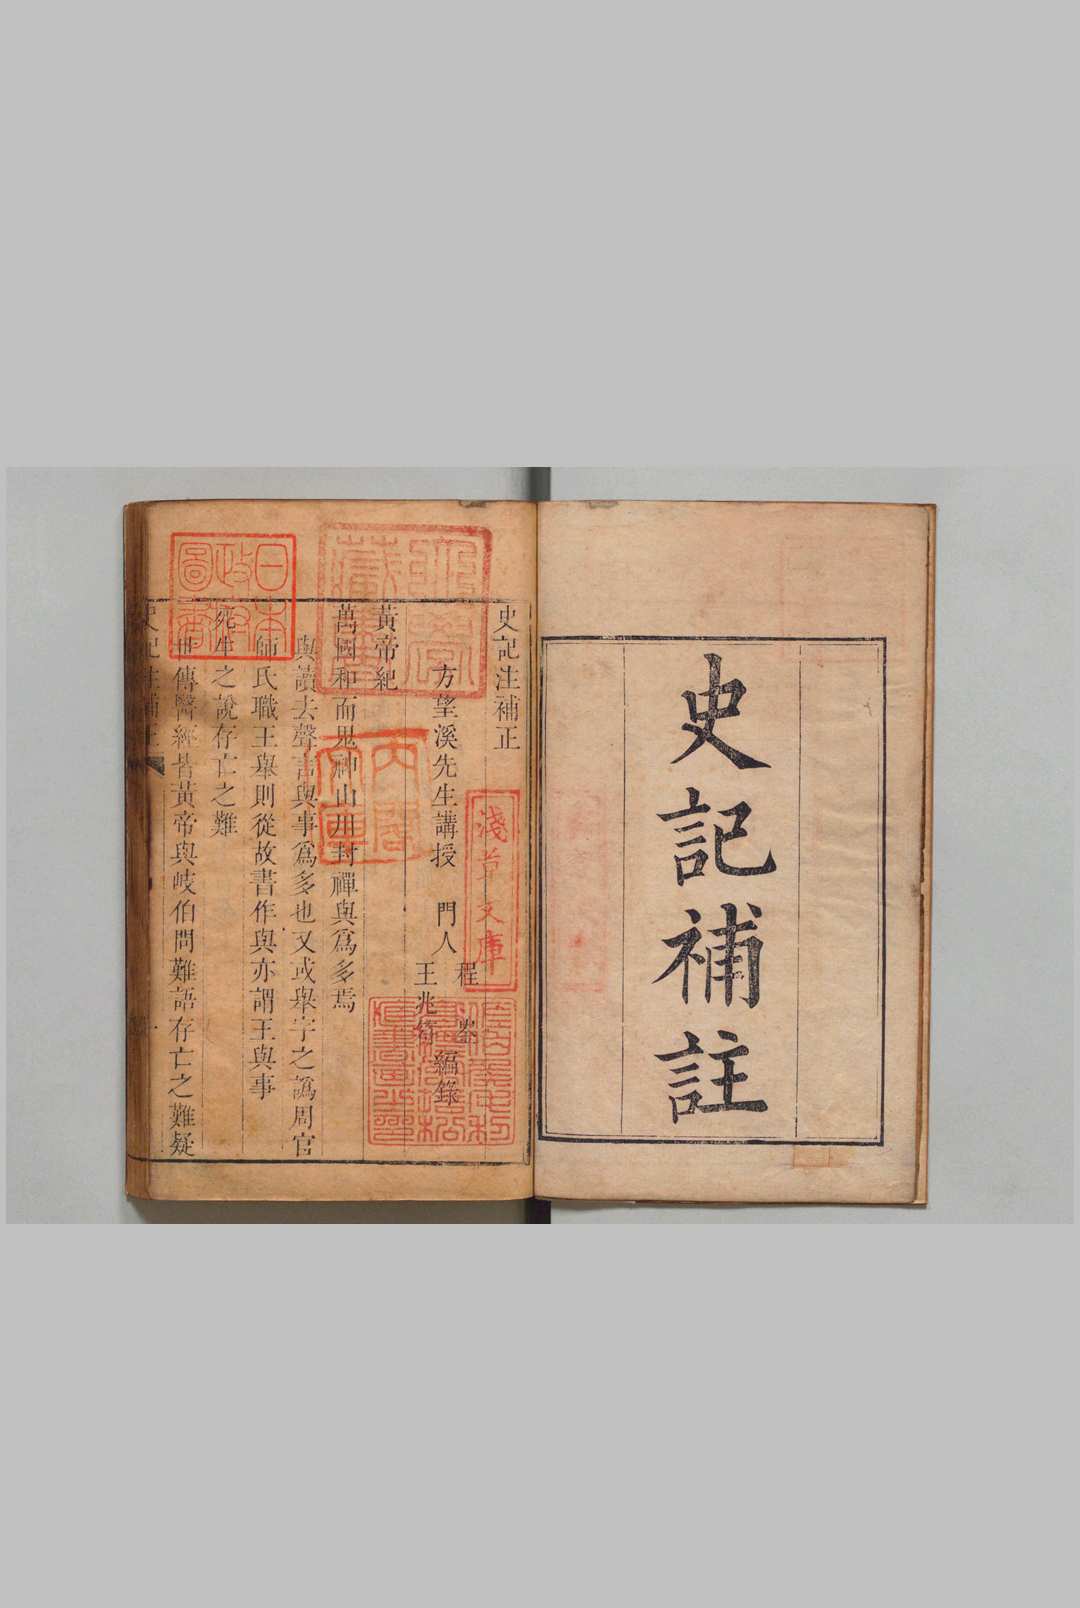 史記補註
史記注補正
方望溪先生講授 門人
程崟
王兆符
編錄
黃帝紀
萬國和而鬼神山川封禪與爲多焉
與讀去聲言與事爲多也又或舉字之譌周官
師氏職王舉則從故書作與亦謂王與事
死生之說存亡之難
世傳醫經皆黃帝與岐伯問難語存亡之難疑
史記注補正
一
淺草文庫
日本政府圖書
內閣文庫